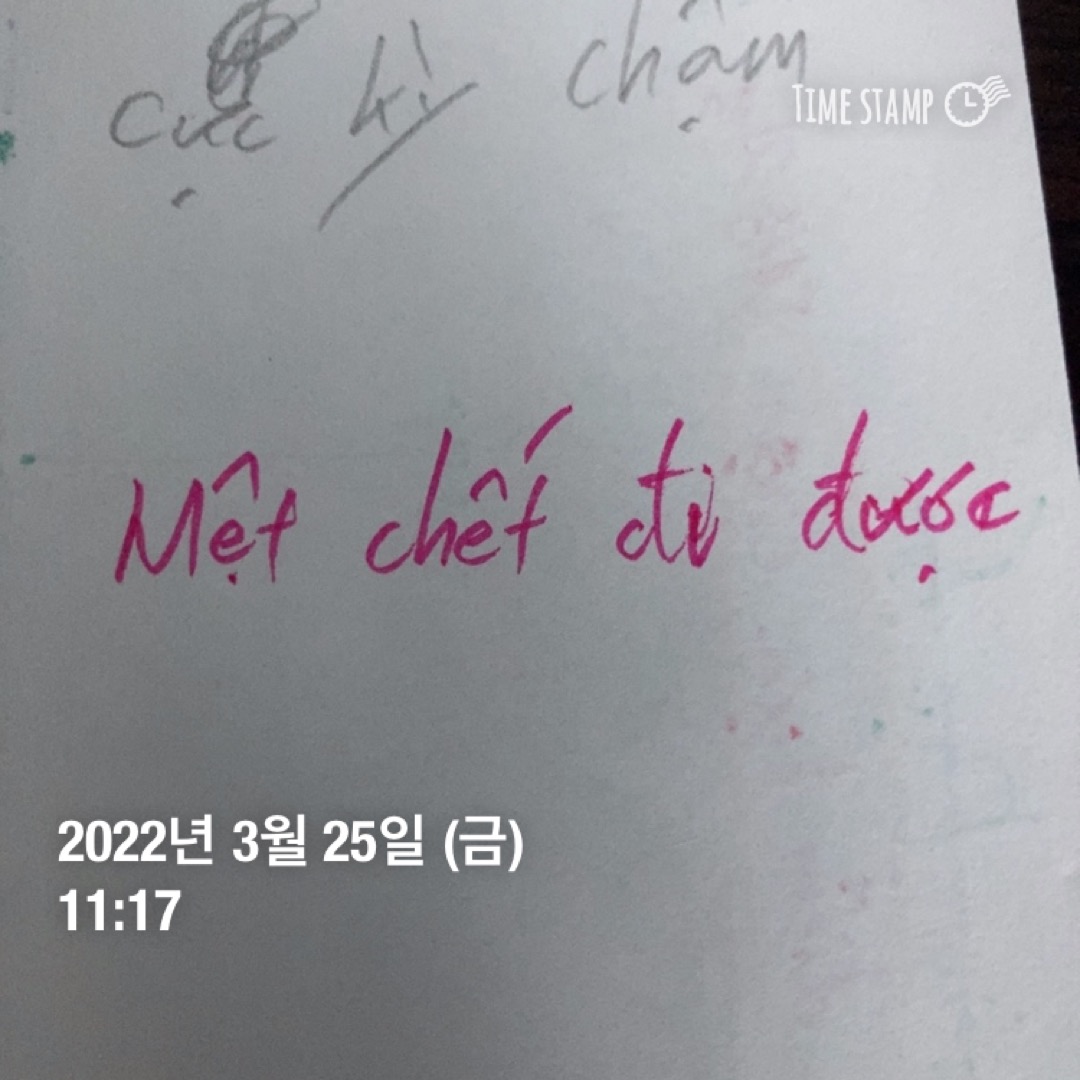 cực kỳ chậm
TIME STAMP
Mệt chết đi được
2022년 3월 25일 (금)
11:17